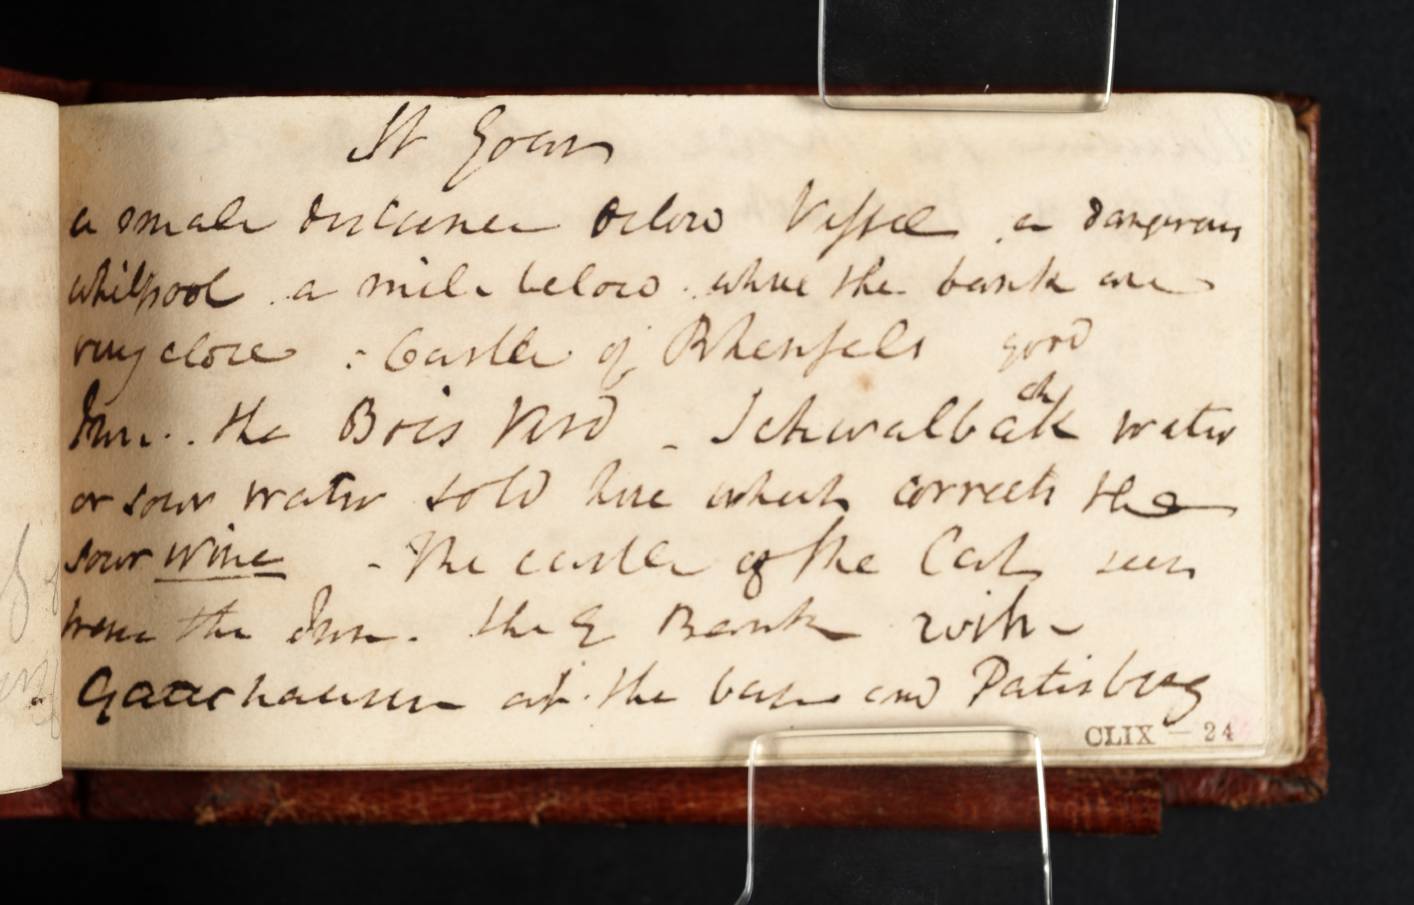 St Goar
a small distance below Vessel a dangerous
whilpool a mile below where the bank are
very close : Castle of Rhenfels good
Inn . the Bois Verd - Schwalbak ch water
or sour water sold here which corrects the
sour wine - The castle of the Cat seen
from the Inn . the E Bank with
at the base and Patisburg
CLIX - 24